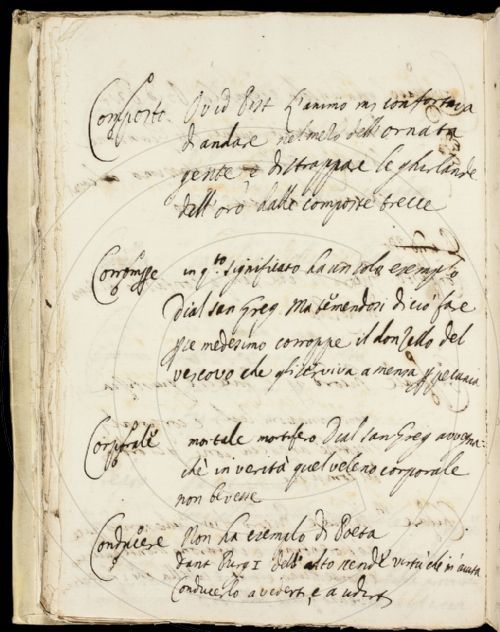 Composto Ovid Pist L'animo mi confortava
di andare nel mezo dell'ornata
gente e di strappar le ghirlande
dell'oro dalle composte trecce
Corrompere in q.to significato ha un solo esempio
Dial San Greg Ma temendosi di ciò fare
per se medesimo corroppe il donzello del
vescovo che gli serviva a mensa per pecunia
Corporale mortale mortifero Dial San Greg avvegna=
chè in verità quel veleno corporale
non bevesse
Conducere Non ha esempio di Poeta
Dant Purg I dell'alto scende virtù che m'aiuta
Conducerlo a vederti, e a udirti